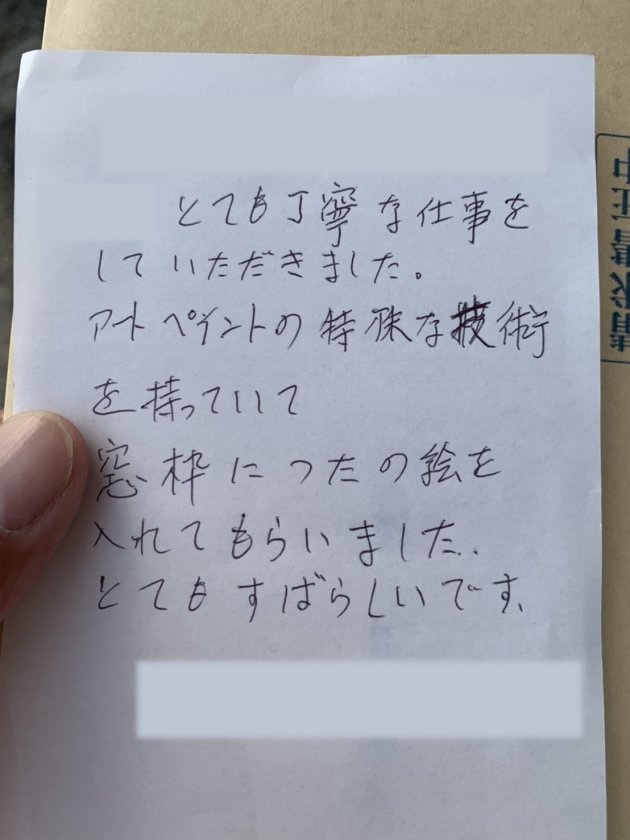 とても丁寧な仕事を
していただきました。
アートペイントの特殊な技術
を持っていて
窓枠につたの絵を
入れてもらいました。
とてもすばらしいです。
請求書在中